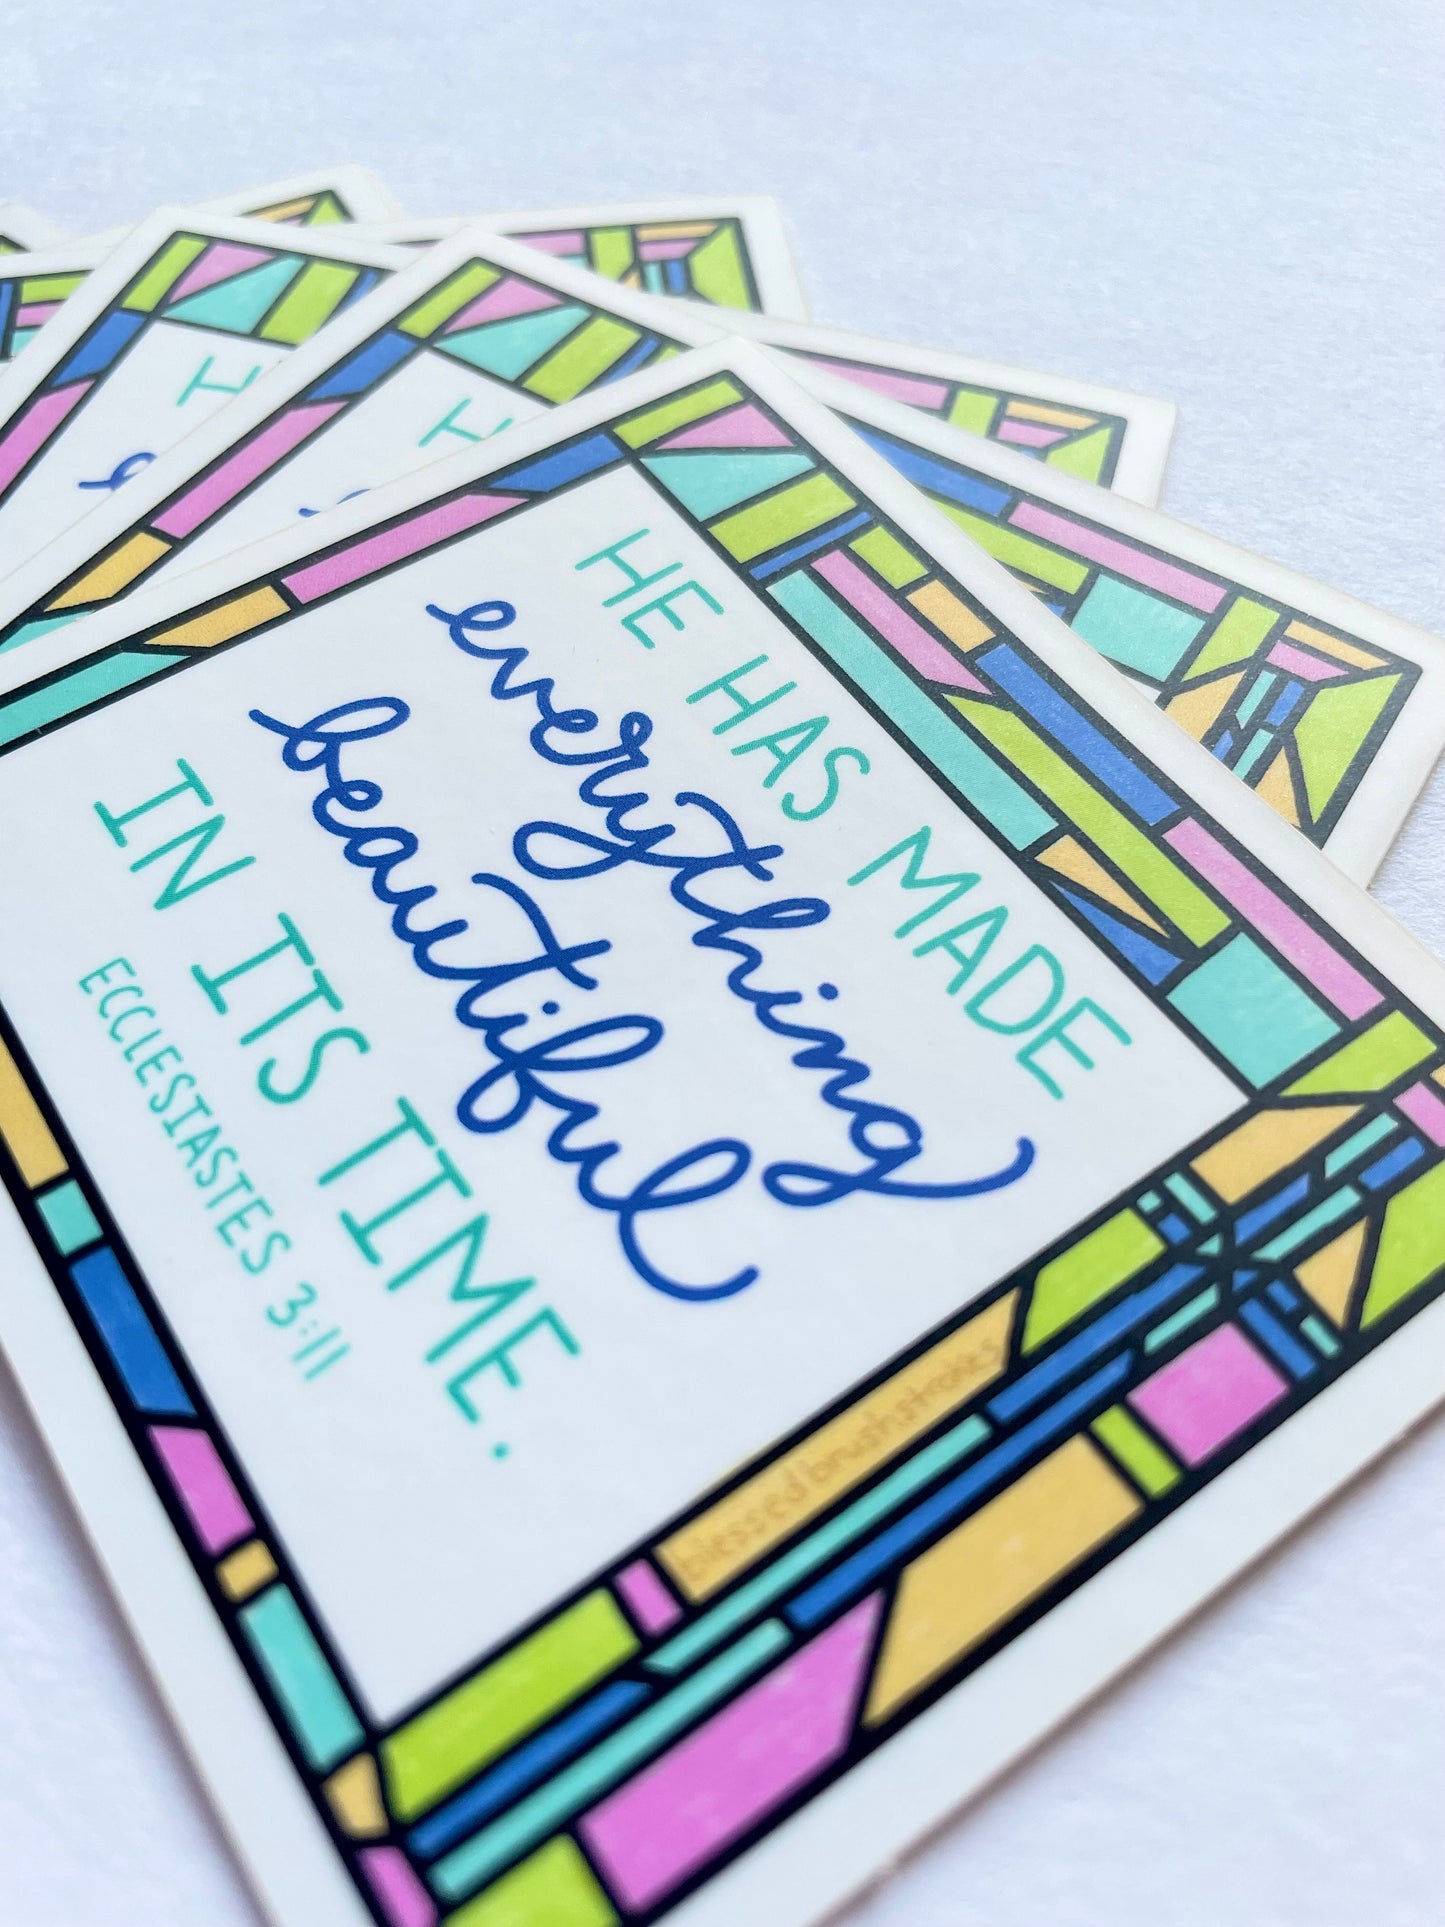 HE HAS MADE
everything
beautiful
IN ITS TIME.
ECCLESIASTES 3:11
blessedbrushstrokes